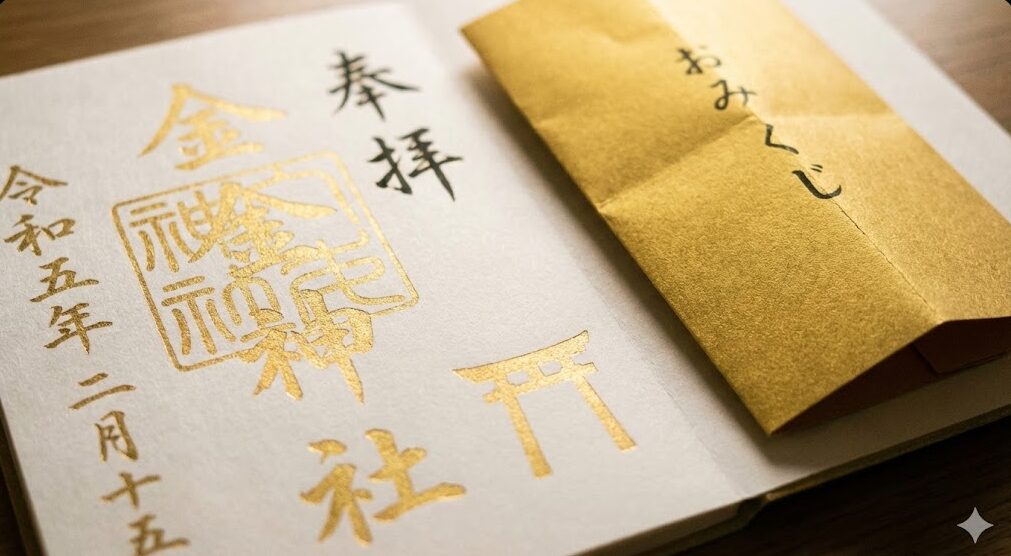 おみくじ
奉拝
金 神社
令和五年 二月十五